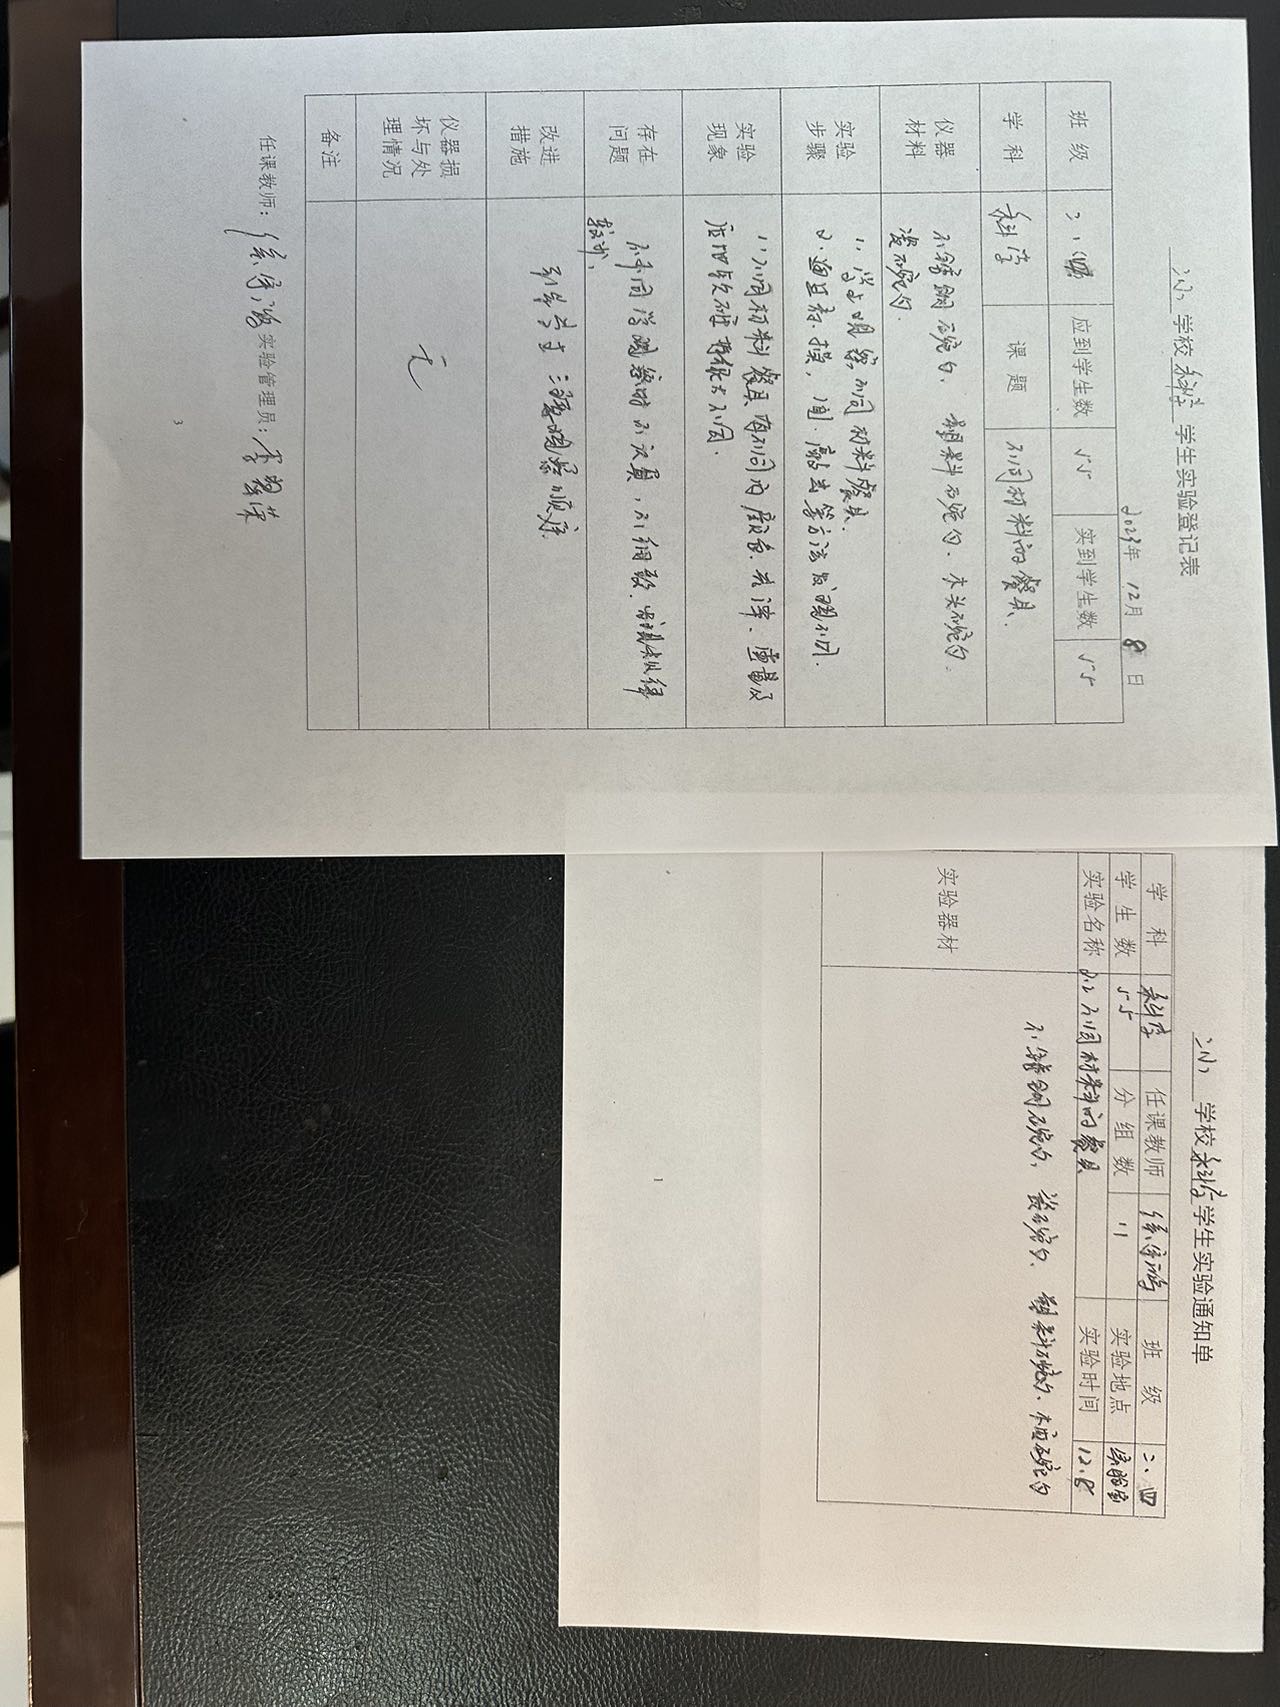 学校科学学生实验登记表
2023年 12月 8日
班级 二.四 应到学生数 55 实到学生数 55
学科 科学 课题 不同材料的餐具.
仪器材料 不锈钢碗勺、塑料碗勺、木头碗勺.
瓷碗勺.
实验步骤 1. 学生观察不同材料餐具.
2. 通过看.摸,闻.敲击等方法发现不同.
实验现象 不同材料餐具有不同的颜色.光泽、重量及
软硬
不同.
存在问题 同学观察时不认真,不细致.
较少.
改进措施 引导学生注意观察顺序.
仪器损坏与处理情况 无
备注
任课教师: 实验管理员:
3
学校科学学生实验通知单
学科 科学 任课教师 班级 二.四
学生数 55 分组数 11 实验地点 实验室
实验名称 2.2 不同材料的餐具 实验时间 12.8
实验器材 不锈钢碗勺, 瓷碗勺、塑料碗勺、木碗勺
1